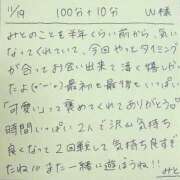 11/19 100分+10分 W様
みとのことも半年くらい前から、気に
なってくれていて、今回やっとタイミング
が合ってお会い出来て凄く嬉しか
ったよ 最初も最後もいっぱい
「可愛い」って褒めてくれてありがとう。
時間いっぱい2人で沢山気持ち
良くなって2回戦して気持ち良すぎ
たね また一緒に遊ぼうね!!
みと